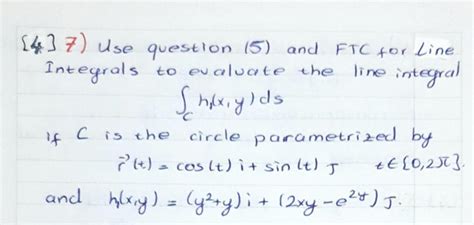 [4] 7) Use question (5) and FTC for Line
Integrals to evaluate the line integral
∫_C h(x,y) ds
if C is the circle parametrized by
r⃗(t) = cos(t) i + sin(t) J t∈[0,2π].
and h(x,y) = (y²+y) i + (2xy - e^{2y}) J.